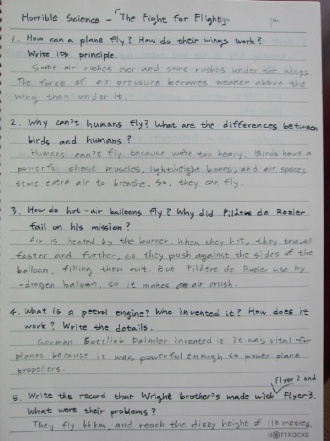 Horrible Science - "The Fight for Flight"
1. How can a plane fly? How do their wings work?
Write its principle.
Some air rushes over and some rushes under the wings
The force of air pressure becomes weaker above the
wing than under it.
2. Why can't humans fly? What are the differences between
birds and humans?
Humans can't fly because we're too heavy. Birds have a
powerful chest muscles, lightweight bones, and air spaces
store extra air to breathe. So, they can fly.
3. How do hot-air balloons fly? Why did Pilâtre de Rozier
fail on his mission?
Air is heated by the burner. When they hot, they travel
faster and further, so they push against the sides of the
balloon, filling them out. But Pilâtre de Rozier use hy
-drogen balloon, so it makes air crush.
4. What is a petrol engine? Who invented it? How does it
work? Write the details.
German Gottlieb Daimler invented it. It was vital for
planes because it was powerful enough to power plane
propellers.
Flyer 2 and
5. Write the record that Wright brother's made with Flyer 3.
What were their problems?
They fly km, and reach the dizzy height of metres.
HOTTRACKS